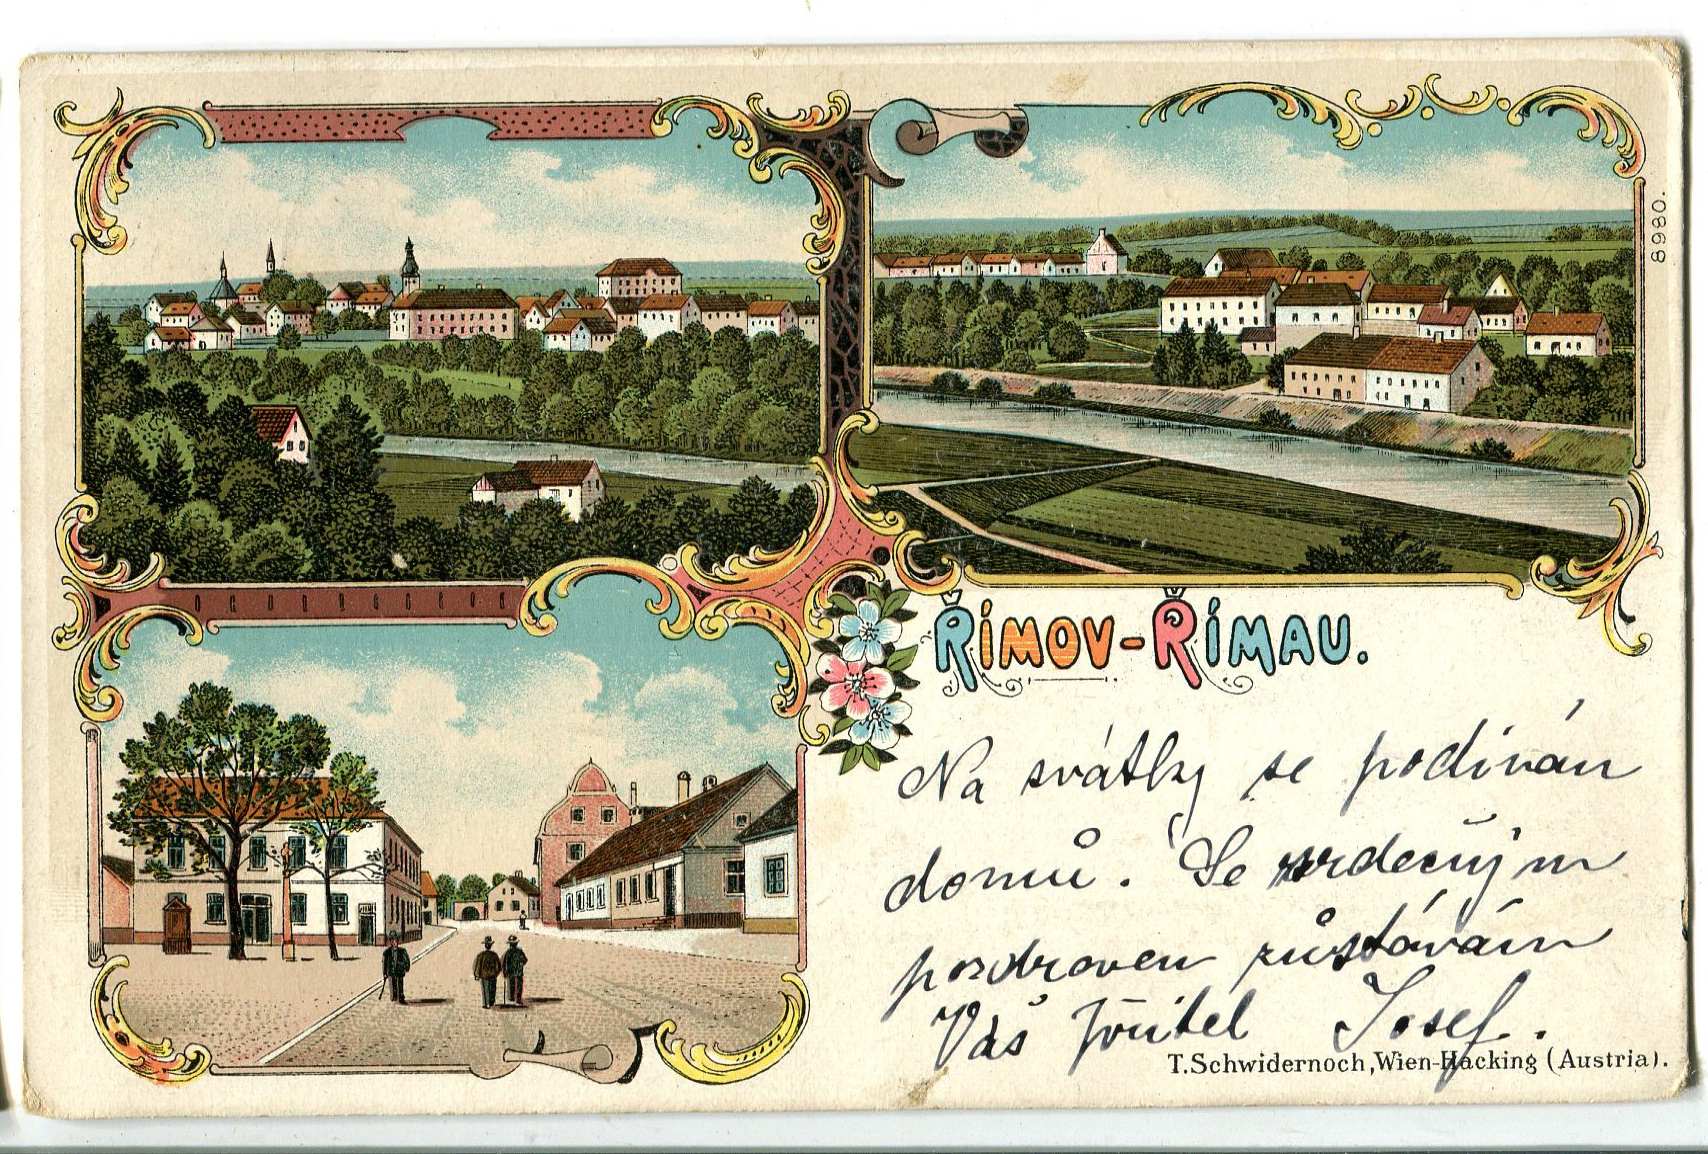 8980.
ŘÍMOV-ŘÍMAU.
Na svátky se podíván
domů. Se srdečným
pozdraven zůstávám
Váš přítel Josef.
T. Schwidernoch, Wien-Hacking (Austria).